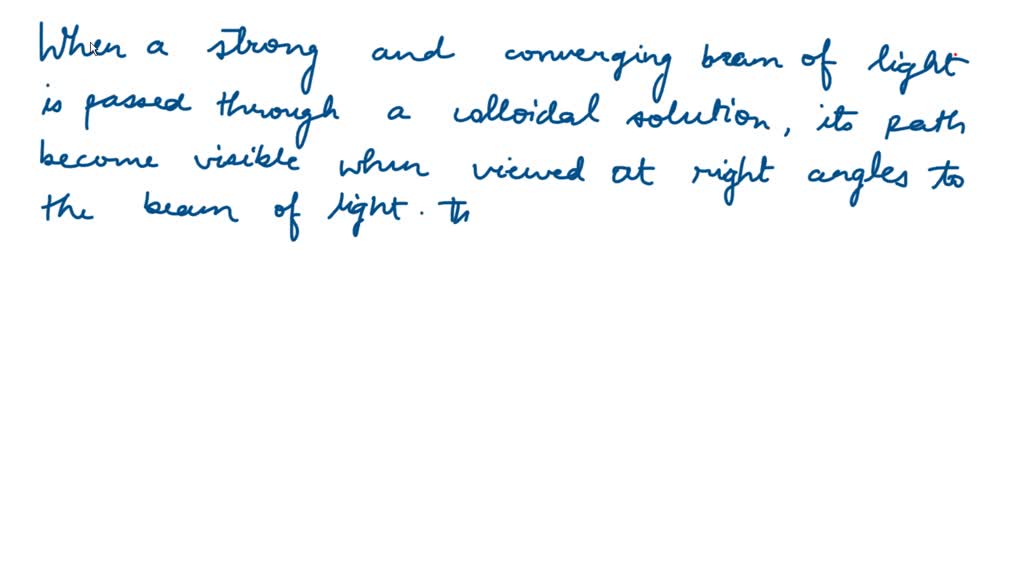 When a strong and converging beam of light
is passed through a colloidal solution, its path
become visible when viewed at right angles to
the beam of light. Th